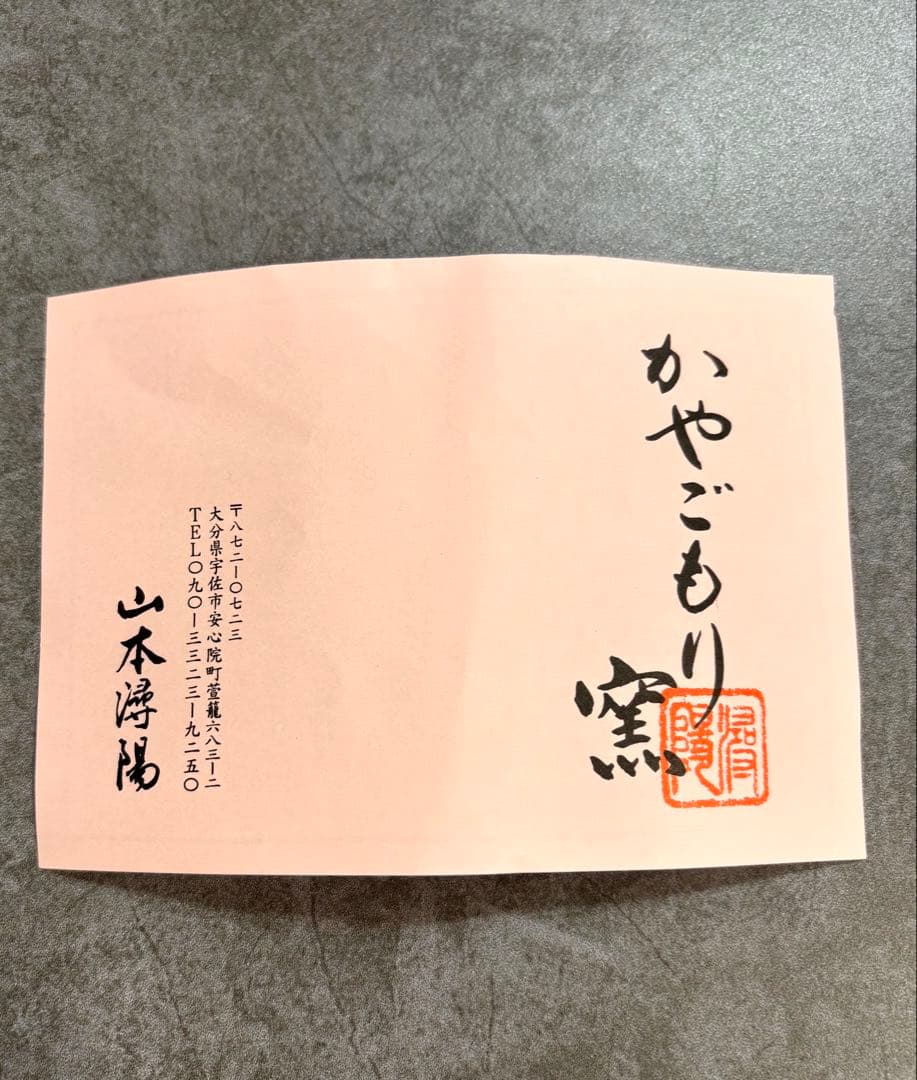 かやごもり
窯
〒八七二ー〇七二三
大分県宇佐市安心院町萱籠六八三ー二
TEL〇九〇ー三三二三ー九二五〇
山本潯陽